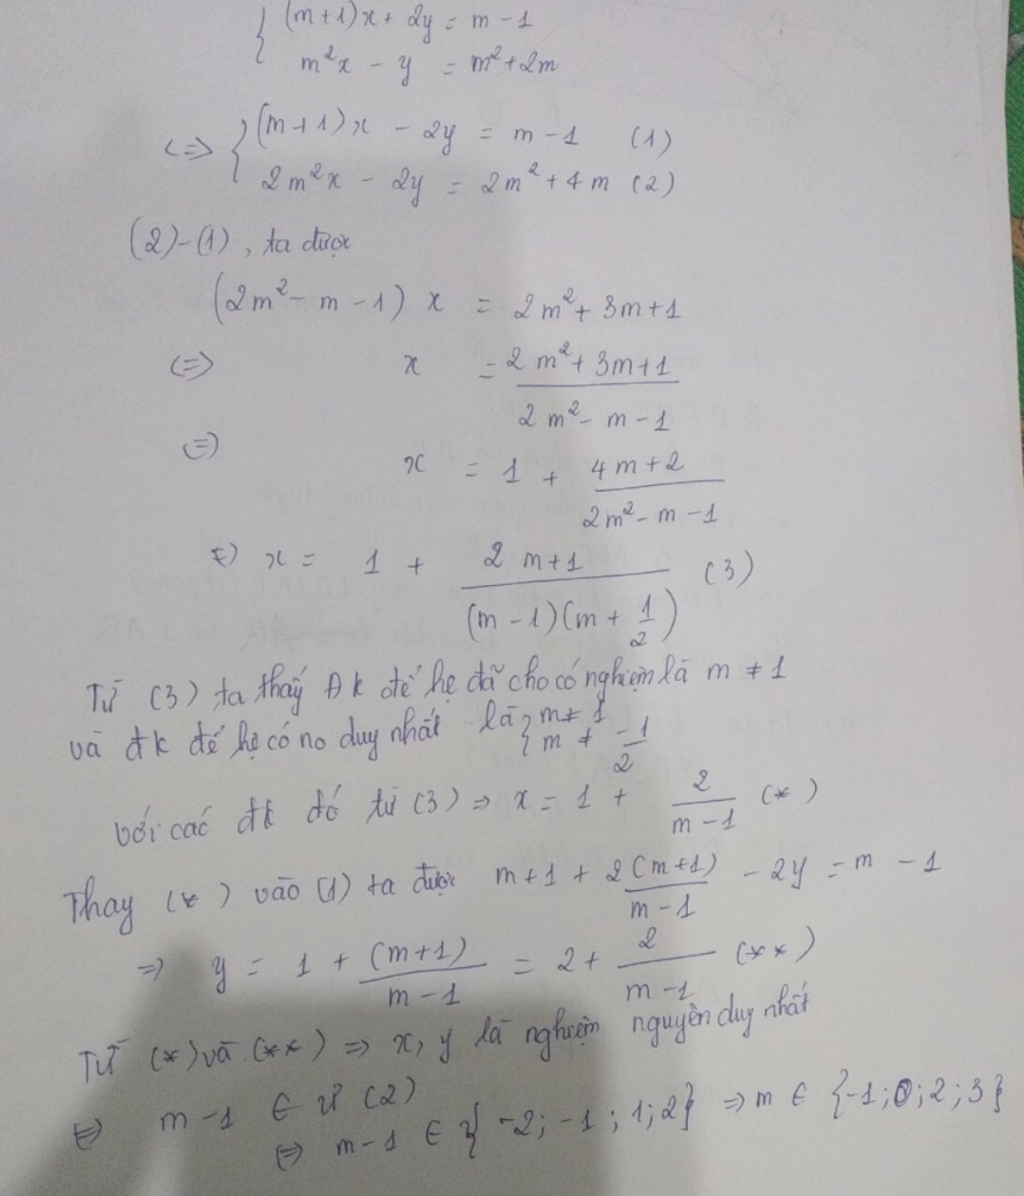 { (m+1)x + 2y = m - 1
m²x - y = m² + 2m
<=> { (m+1)x - 2y = m - 1 (1)
2m²x - 2y = 2m² + 4m (2)
(2)-(1), ta được
(2m² - m - 1) x = 2m² + 3m + 1
<=> x = (2m² + 3m + 1)/(2m² - m - 1)
<=> x = 1 + (4m + 2)/(2m² - m - 1)
<=> x = 1 + (2m + 1)/((m - 1)(m + 1/2)) (3)
Từ (3) ta thấy Đk để hệ đã cho có nghiệm là m ≠ 1
và đk để hệ có no duy nhất là { m ≠ 1
m ≠ -1/2
với các đk đó từ (3) => x = 1 + 2/(m - 1) (*)
Thay (*) vào (1) ta được m + 1 + 2(m+1)/(m - 1) - 2y = m - 1
=> y = 1 + (m+1)/(m - 1) = 2 + 2/(m - 1) (**)
Từ (*) và (**) => x, y là nghiệm nguyên duy nhất
<=> m - 1 ∈ Ư (2)
<=> m - 1 ∈ { -2; -1; 1; 2} => m ∈ {-1; 0; 2; 3}